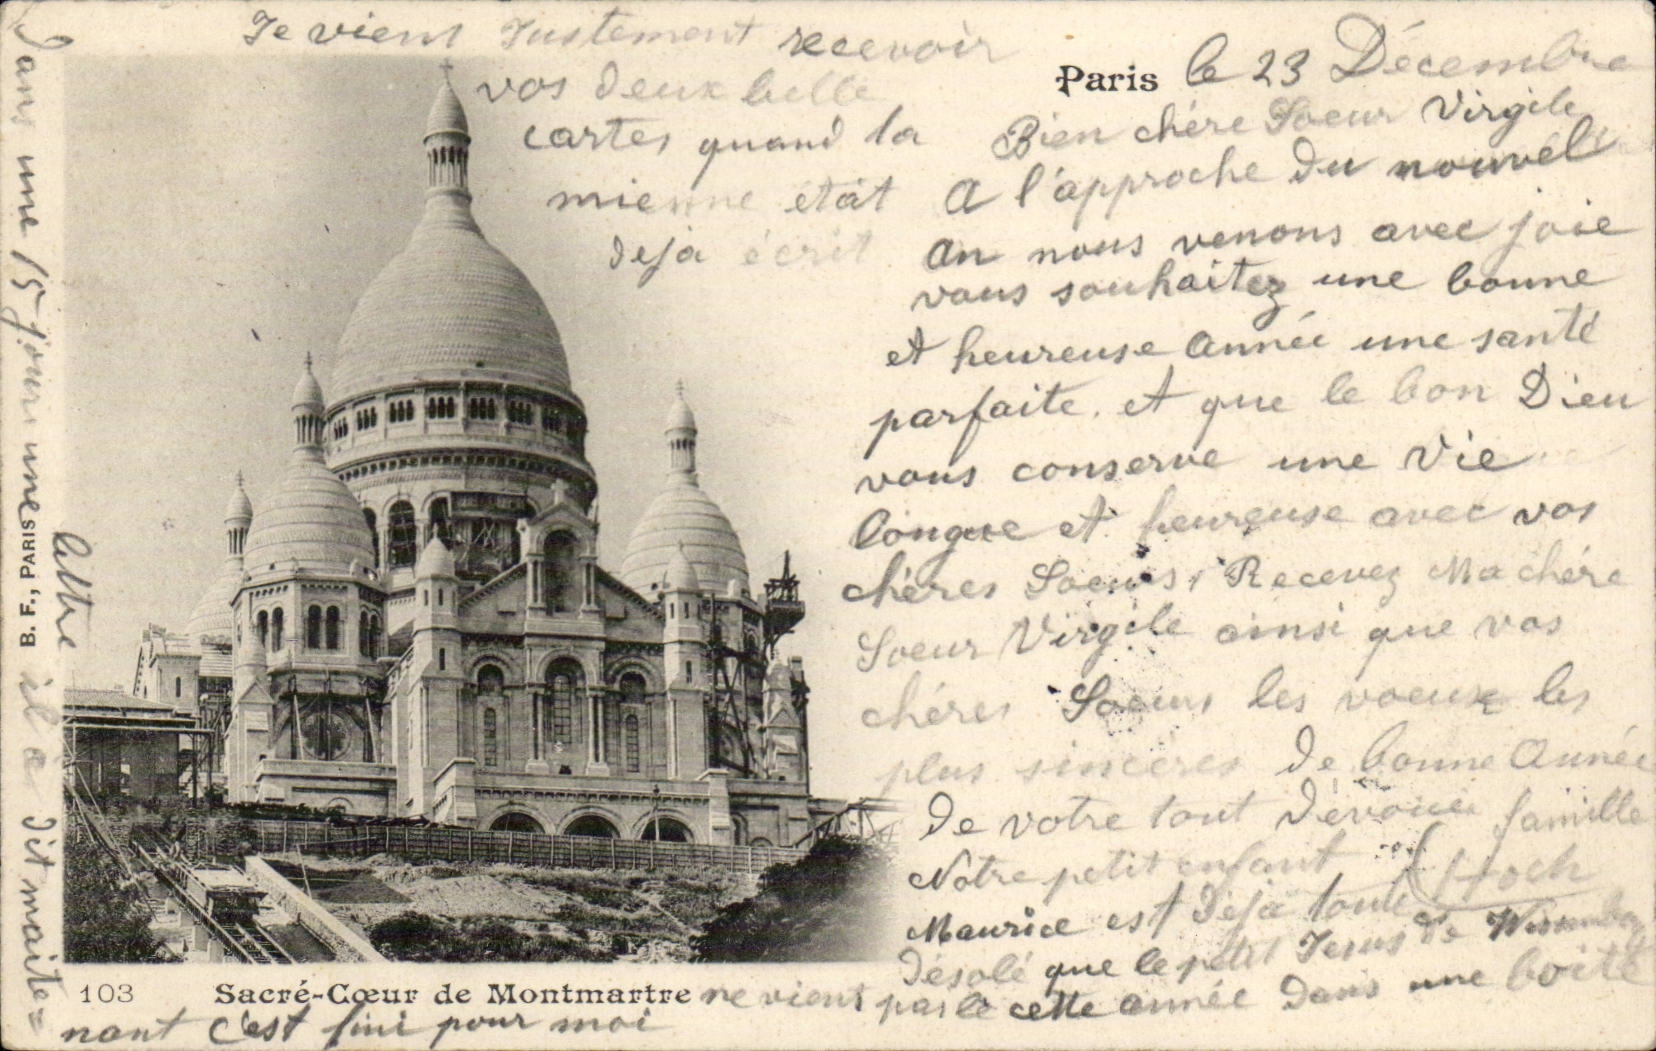 Je viens Justement recevoir
vos deux belle
cartes quand la
mienne étàt
deja écrit
Paris le 23 Décembre
Bien chére Soeur Virgile
A l'approche du nouvel
An nous venons avec joie
vous souhaitez une bonne
et heureuse Année une santé
parfaite. et que le bon Dieu
vous conserve une Vie
longue et heureuse avec vos
chères Soeurs, Recevez Ma chére
Soeur Virgile ainsi que vos
chéres Soeurs les voeux les
plus sincéres de bonne Année
de votre tout dévouée famille
Hoch
Notre petit enfant
Maurice est deja tout
désolé que le petit Jesus de
ne vient pas le cette année dans une boité
dans une 15 jours une
lettre il a dit maite=
nant c'est fini pour moi
B. F., PARIS
103 Sacré-Cœur de Montmartre